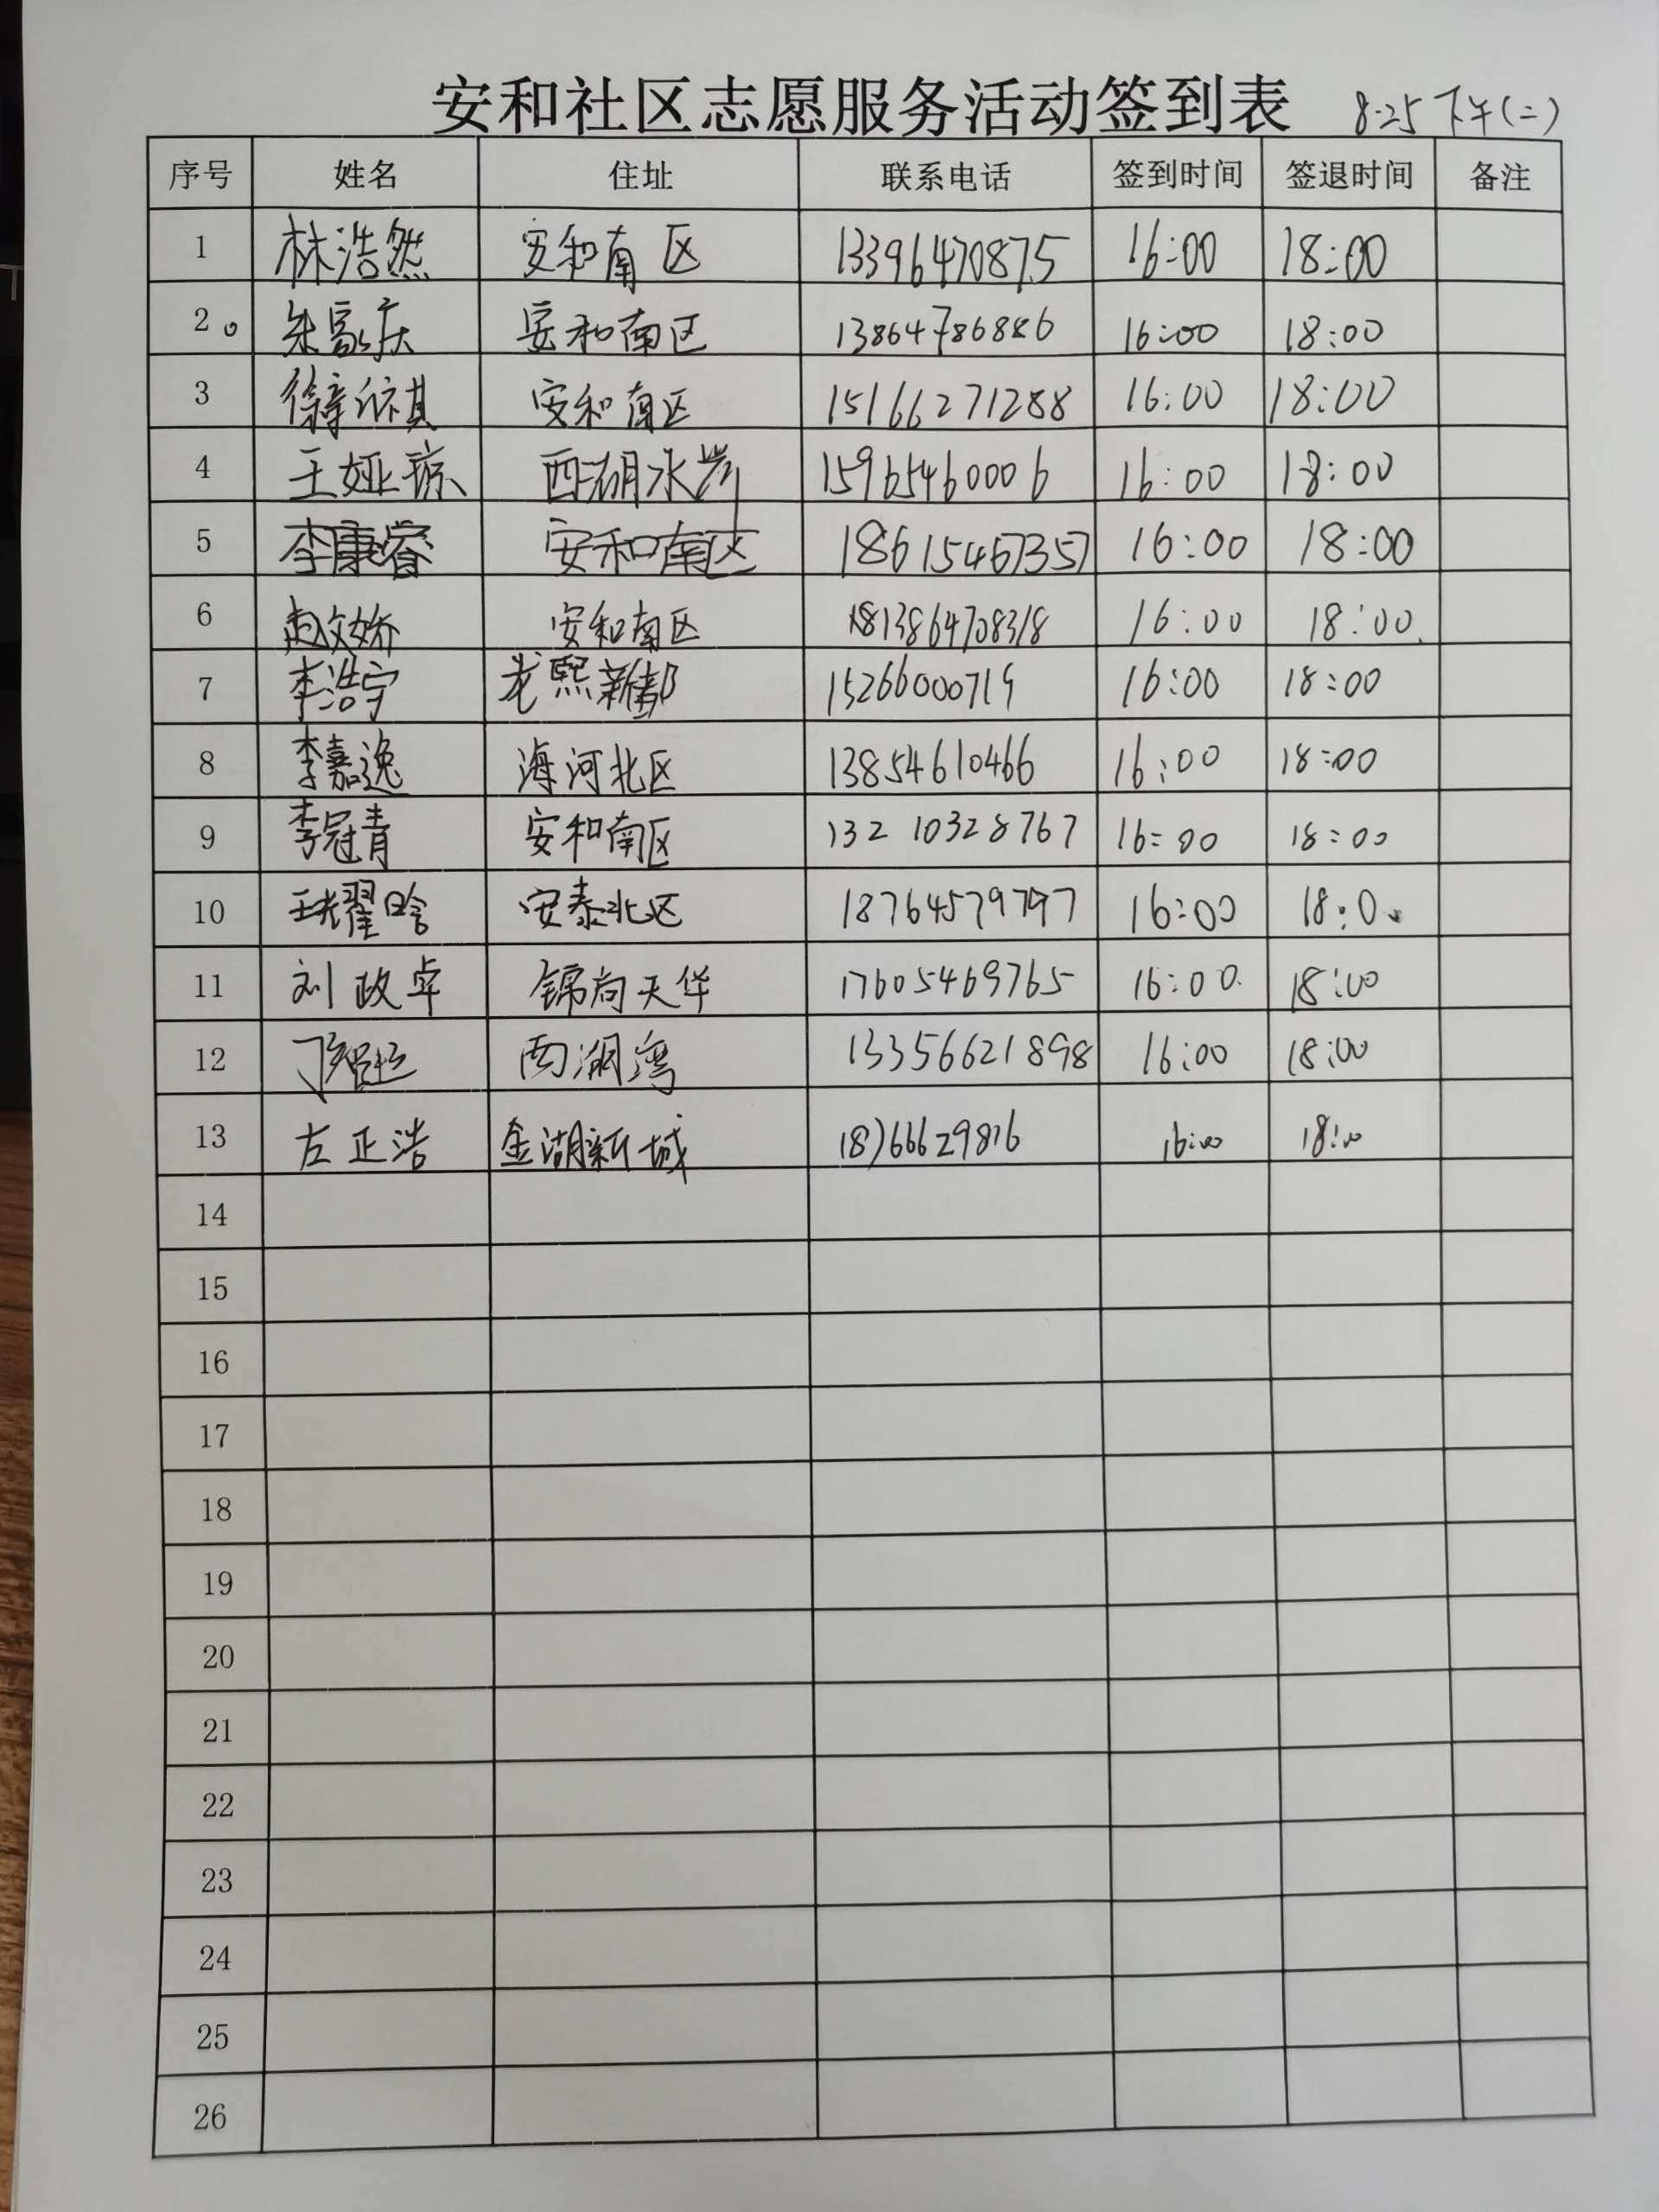 安和社区志愿服务活动签到表 8.25 下午(二)
序号 姓名 住址 联系电话 签到时间 签退时间 备注
1 林浩然 安和南区 13396470875 16:00 18:00
2 朱家庆 安和南区 13864786886 16:00 18:00
3 安和南区 15166271288 16:00 18:00
4 王娅琼 西湖水岸 15965460006 16:00 18:00
5 李康睿 安和南区 18615467357 16:00 18:00
6 赵文娇 安和南区 16:00 18:00
7 李浩宁 新都 15266000719 16:00 18:00
8 李嘉逸 海河北区 13854610466 16:00 18:00
9 李冠青 安和南区 132 10328767 16:00 18:00
10 安泰北区 18764579797 16:00 18:0
11 刘政卓 锦尚天华 17605469765 16:00 18:00
12 西湖湾 13356621898 16:00 18:00
13 左正浩 金湖新城 16:00 18:00
14
15
16
17
18
19
20
21
22
23
24
25
26